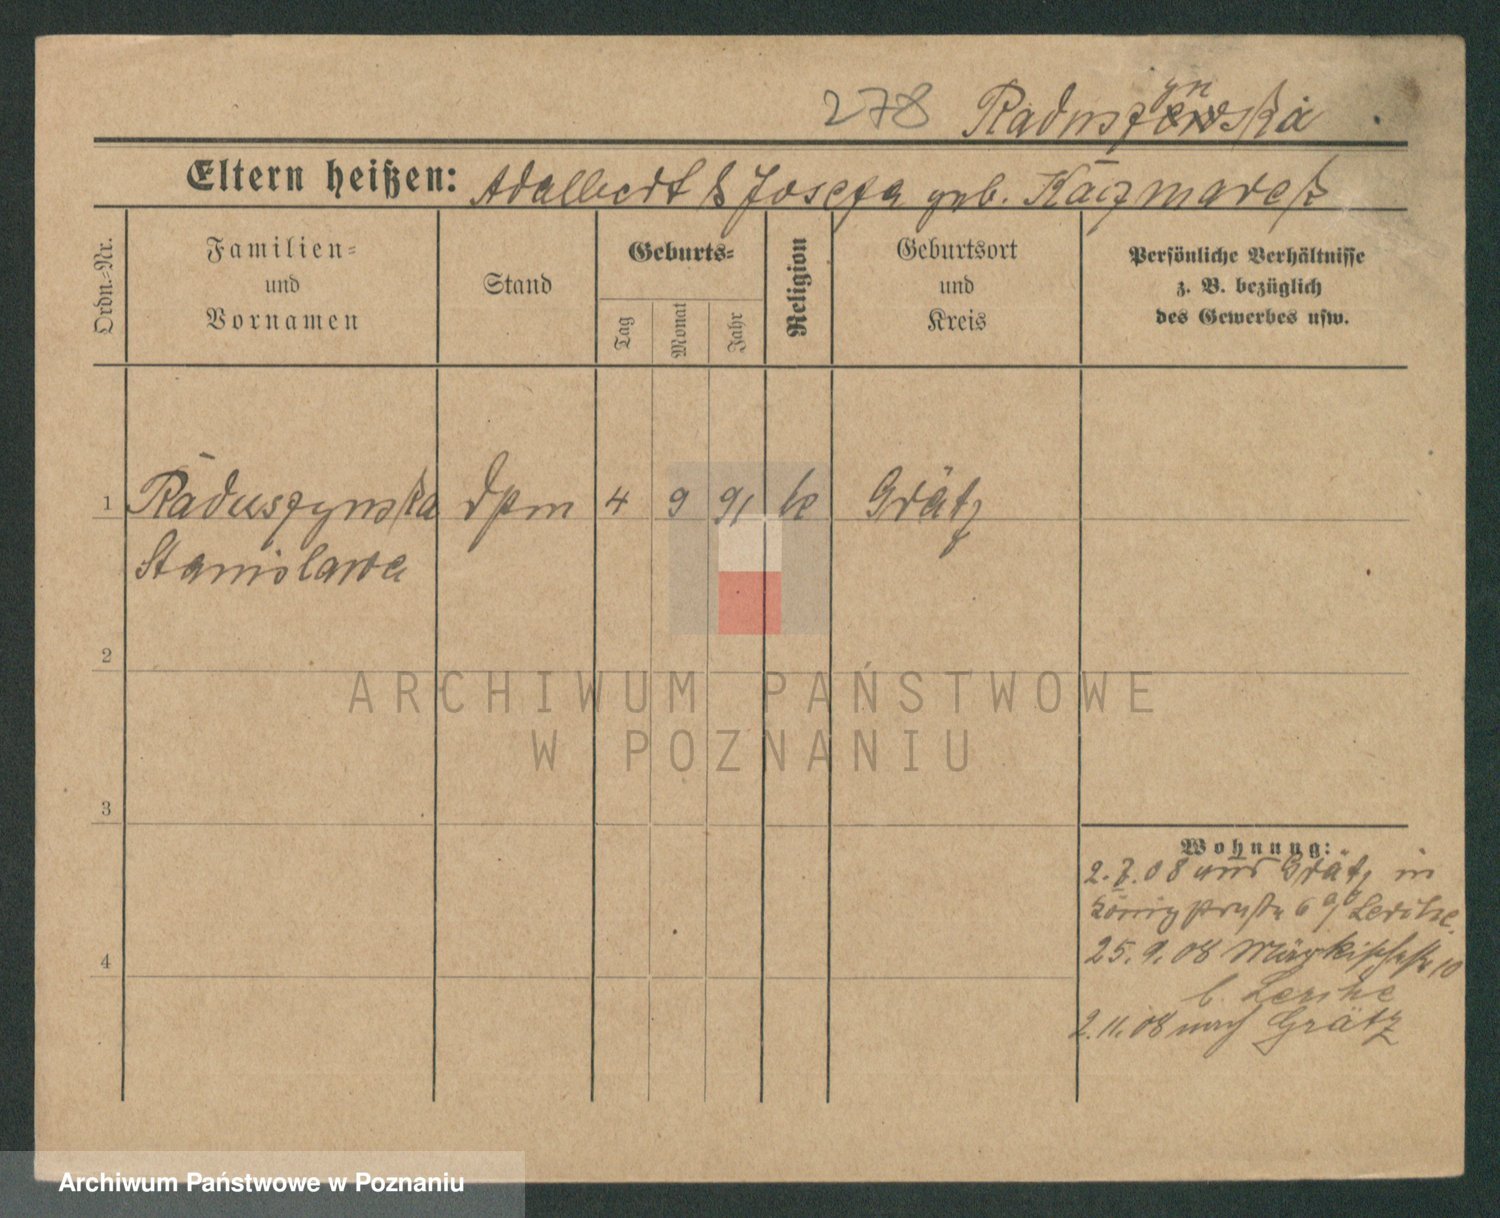 278 Raduszynska
Eltern heißen: Adalbert & Josefa geb. Kaczmarek
Ordn.-Nr.
Familien-
und
Vornamen
Stand
Geburts-
Tag
Monat
Jahr
Religion
Geburtsort
und
Kreis
Persönliche Verhältnisse
z. B. bezüglich
des Gewerbes usw.
1 Raduszynska dpm 4 9 91 k Grätz
Stanislawa
2
3
4
Wohnung:
2.7.08 aus Grätz in
6
25.9.08 Märkischestr 10
b.
2.11.08 nach Grätz
ARCHIWUM PAŃSTWOWE
W POZNANIU
Archiwum Państwowe w Poznaniu